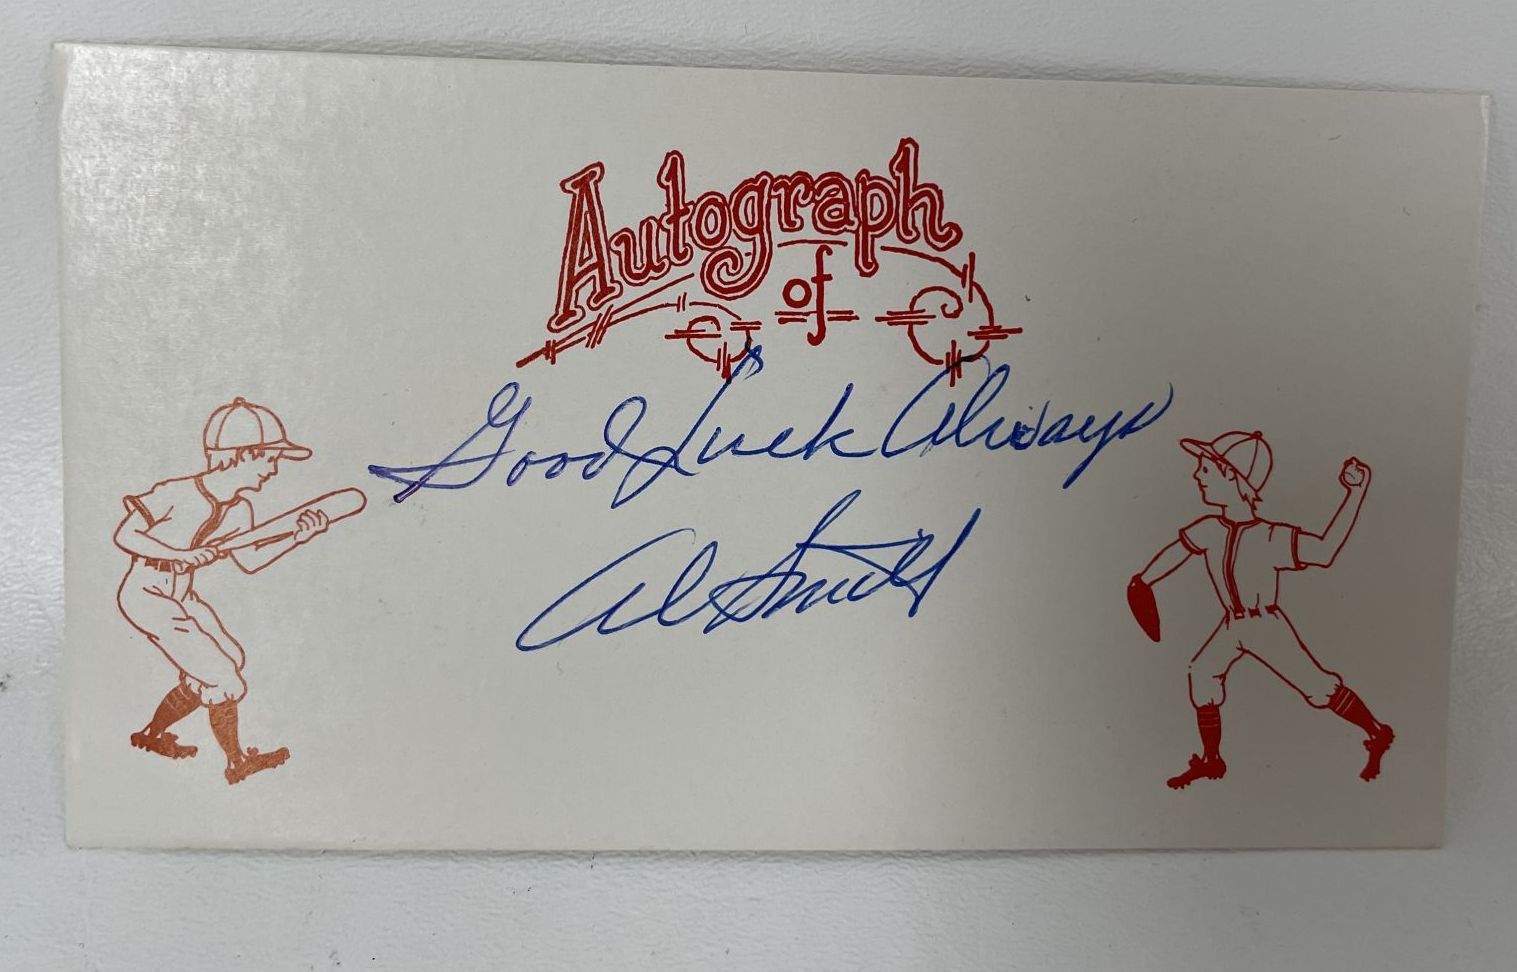 Autograph
of
Good Luck Always
Al Smith